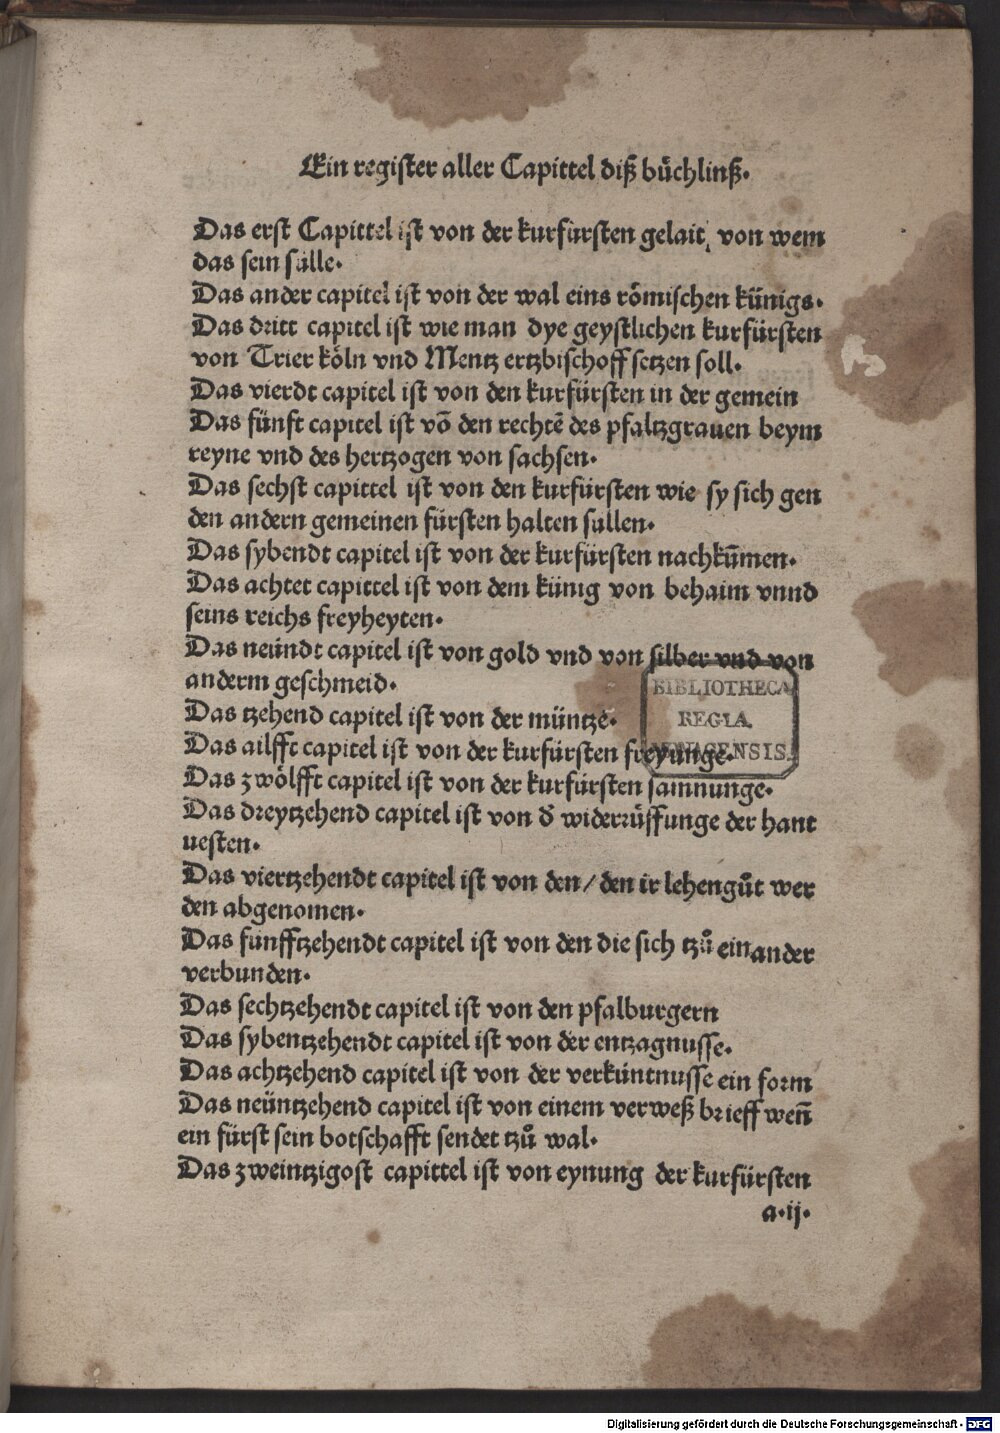 Ein register aller Capittel diß bůchlinß.
Das erst Capittel ist von der kurfürsten gelait, von wem
das sein sülle.
Das ander capitel ist von der wal eins römischen künigs.
Das dritt capitel ist wie man dye geystlichen kurfürsten
von Trier köln vnd Mentz ertzbischoff setzen soll.
Das vierdt capitel ist von den kurfürsten in der gemein
Das fünft capitel ist võ den rechtẽ des pfaltzgrauen beym
reyne vnd des hertzogen von sachsen.
Das sechst capittel ist von den kurfürsten wie sy sich gen
den andern gemeinen fürsten halten sullen.
Das sybendt capitel ist von der kurfürsten nachkũmen.
Das achtet capittel ist von dem künig von behaim vnnd
seins reichs freyheyten.
Das neündt capitel ist von gold vnd von silber vnd von
anderm geschmeid.
Das tzehend capitel ist von der müntze.
Das ailfft capitel ist von der kurfürsten freyunge.
Das zwölfft capitel ist von der kurfürsten samnunge.
Das dreytzehend capitel ist von d̕ widerrůffunge der hant
uesten.
Das viertzehendt capitel ist von den/den ir lehengůt wer
den abgenomen.
Das fünfftzehendt capitel ist von den die sich tzů einander
verbunden.
Das sechtzehendt capitel ist von den pfalburgern
Das sybentzehendt capitel ist von der entzagnusse.
Das achtzehend capitel ist von der verküntnusse ein form
Das neüntzehend capitel ist von einem verweß brieff weñ
ein fürst sein botschafft sendet tzů wal.
Das zweintzigost capittel ist von eynung der kurfürsten
a.ij.
BIBLIOTHECA
REGIA
MONACENSIS.
Digitalisierung gefördert durch die Deutsche Forschungsgemeinschaft - DFG